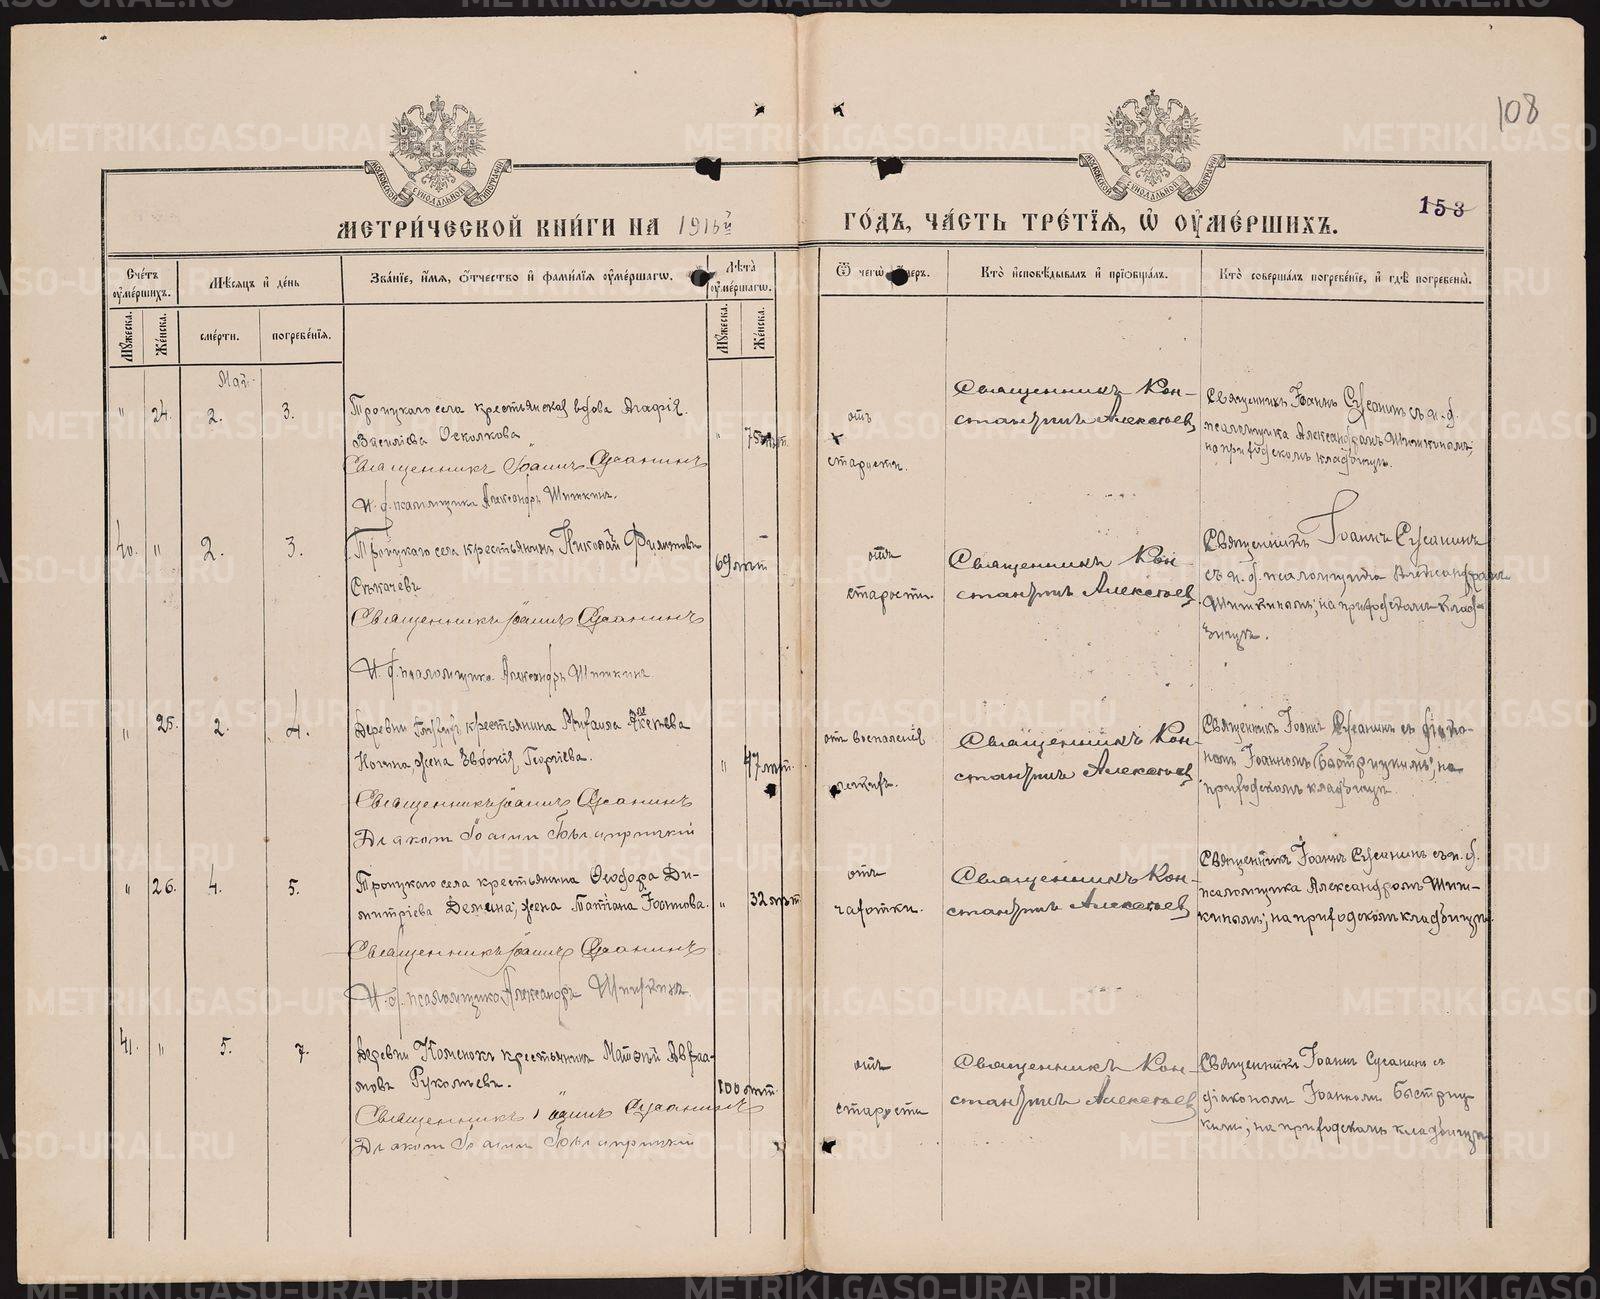 108
153
МЕТРИ́ЧЕСКОЙ КНИ́ГИ НА 1916й
ГО́ДЪ, ЧА́СТЬ ТРЕ́ТІѦ, Ѡ҆ ОУ҆МЕ́РШИХЪ.
Сче́тъ оу҆ме́ршихъ.
Мѣ́сяцъ и҆ де́нь
Зва́нїе, и҆́мѧ, ѻ҆́тчество и҆ фами́лїѧ оу҆ме́ршагѡ.
Лѣ́та оу҆ме́ршагѡ.
Ѿ чегѡ̀
Кто̀ и҆сповѣ́дывалъ и҆ прїѡбща́лъ.
Кто̀ соверша́лъ погребе́нїе, и҆ гдѣ̀ погребены̀.
Му́жеска.
Же́нска.
сме́рти.
погребе́нїѧ.
Му́жеска.
Же́нска.
Май
" 24. 2. 3.
Троицкаго села крестьянская вдова Агафія
Василіева Осколкова
Священникъ Іоаннъ Сусанинъ
И. д. псаломщика Александръ Шишкинъ.
" 75 лѣт.
отъ
старости.
Священникъ Кон-
стантинъ Алексѣевъ
Священникъ Іоаннъ Сусанинъ съ и. д.
псаломщика Александромъ Шишкинымъ;
на приходскомъ кладбищѣ.
40. " 2. 3.
Троицкаго села крестьянинъ Николай Филиппов
Секачевъ
Священникъ Іоаннъ Сусанинъ
И. д. псаломщика Александръ Шишкинъ
69 лѣт
отъ
старости.
Священникъ Кон-
стантинъ Алексѣевъ
Священникъ Іоаннъ Сусанинъ
съ и. д. псаломщика Александромъ
Шишкинымъ; на приходскомъ кладб-
бищѣ.
" 25. 2. 4.
Деревни крестьянина
Ногина, жена Евдокія Георгіева.
Священникъ Іоаннъ Сусанинъ
Діаконъ Іоаннъ Быстрицкій
" 47 лѣт.
отъ воспаленія
легкихъ.
Священникъ Кон-
стантинъ Алексѣевъ
Священникъ Іоаннъ Сусанинъ съ діако-
номъ Іоанномъ Быстрицкимъ; на
приходскомъ кладбищѣ.
" 26. 4. 5.
Троицкаго села крестьянина Ѳеодора Ди-
митріева Демина, жена Татіана Іоаннова.
Священникъ Іоаннъ Сусанинъ
И. д. псаломщика Александръ Шишкинъ.
" 32 лѣт
отъ
чахотки.
Священникъ Кон-
стантинъ Алексѣевъ
Священникъ Іоаннъ Сусанинъ съ и. д.
псаломщика Александромъ Шиш-
кинымъ; на приходскомъ кладбищѣ.
41. " 5. 7.
Деревни Каменокъ крестьянинъ Матѳей Авраа-
мовъ Рукомѣевъ.
Священникъ Іоаннъ Сусанинъ
Діаконъ Іоаннъ Быстрицкій
100 лѣт.
отъ
старости
Священникъ Кон-
стантинъ Алексѣевъ
Священникъ Іоаннъ Сусанинъ съ
діакономъ Іоанномъ Быстриц-
кимъ; на приходскомъ кладбищѣ
METRIKI.GASO-URAL.RU